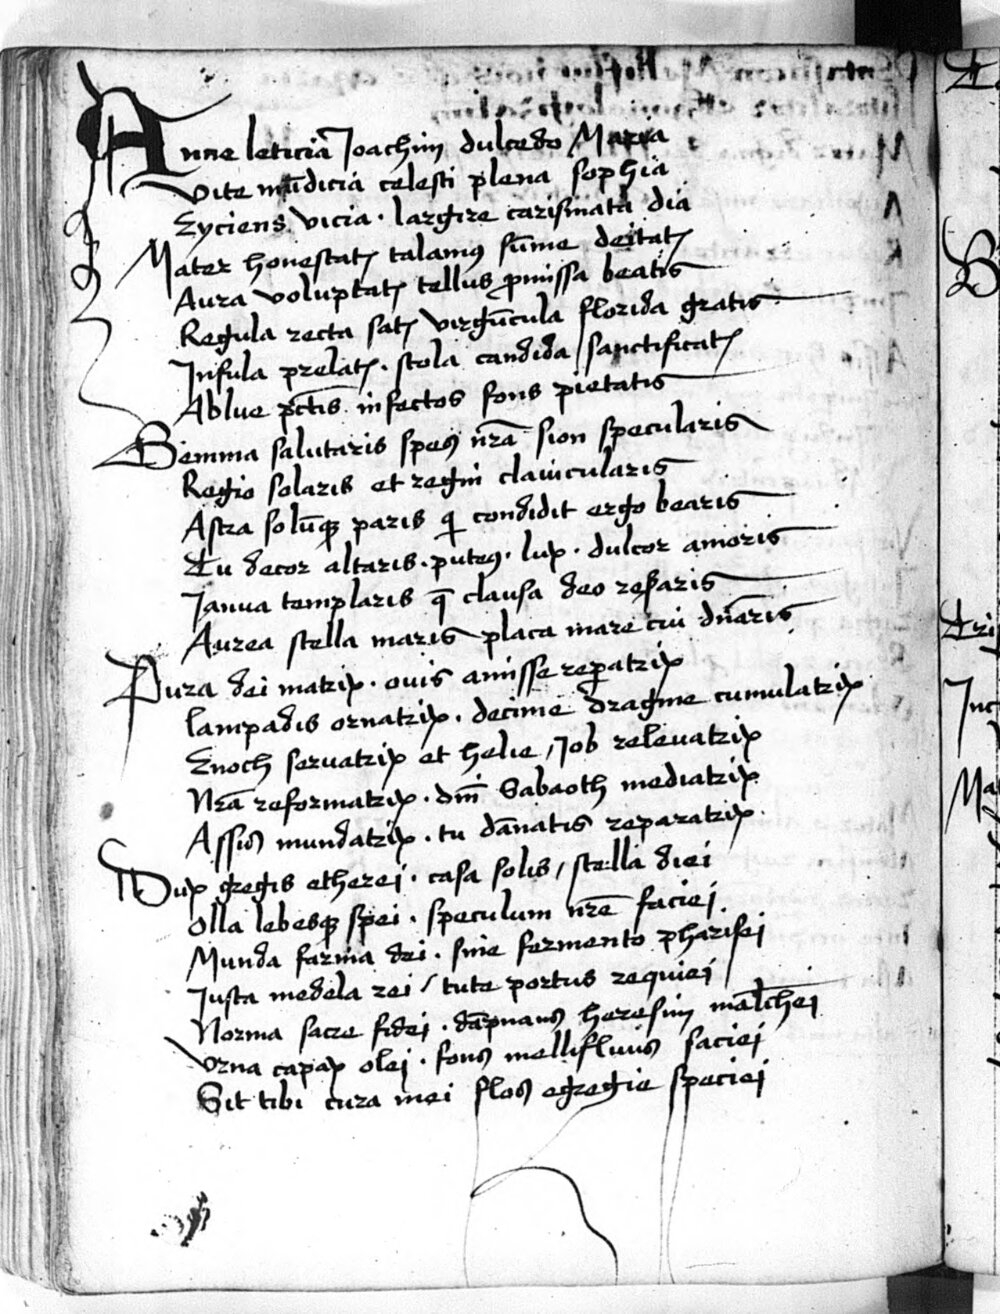 Anne leticia Joachim dulcedo Maria
Vite mūdicia celesti plena sophia
Eyciens vicia · largire carismata dia
Mater honestatꝭ talamꝰ sūme deitatꝭ
Aura voluptatꝭ tellus ꝓmissa beatis
Regula recta satꝭ virgūcula florida gratis
Infula prelatꝭ · stola candida sanctificatꝭ
Ablue pct̄is infectos fons pietatis
Gemma salutaris spes nr̄a sion specularis
Regio solaris et regni clauicularis
Astra solūqꝫ paris q̄ condidit ergo bearis
Tu decor altaris · puteꝰ · lux · dulcor amoris
Janua templaris q̄ clausa deo reseraris
Aurea stella maris placa mare cui dn̄aris
Pura dei matrix · ouis amisse reꝑatrix
Lampadis ornatrix · decime dragme cumulatrix
Enoch seruatrix et helie / Job releuatrix
Nr̄a reformatrix · dn̄i Sabaoth mediatrix
Assis mundatrix · tu dānatis reparatrix
Dux gregis etherei · casa solis / stella diei
Olla lebesqꝫ spei · speculum nr̄e faciei
Munda farina dei · sine fermento pharisei
Justa medela rei / tute portus requiei
Norma sacre fidei · dāpnans heresim
Vrna capax olei · fons mellifluus faciei
Sit tibi cura mei flos egregie speciei